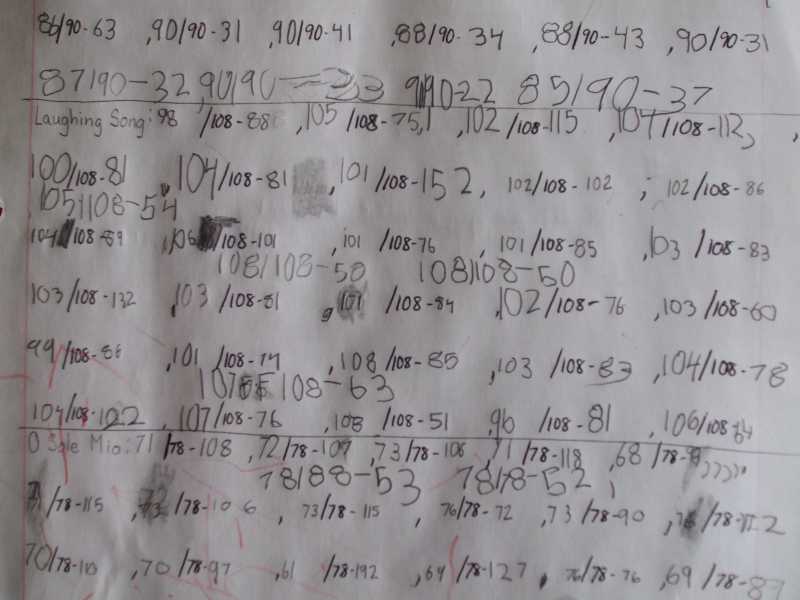 86/90-63 ,90/90-31 ,90/90-41 ,88/90-34 ,88/90-43 ,90/90-31
87/90-32, 90/90-33 90-22 85/90-37
Laughing Song: 98 /108-88 ,105 /108-75, ,102/108-115 ,104/108-112, ,
100/108-81 ,104/108-81 ,101/108-152, 102/108-102 , 102/108-86
,105/108-54
104/108-89 ,106/108-101 ,101 /108-76 , 101/108-85 ,103 /108-83
108/108-50 108/108-50
103/108-132 ,103 /108-81 ,101 /108-84 ,102/108-76 ,103/108-60
99/108-86 ,101 /108-74 ,108/108-85 ,103 /108-83 ,104/108-78
107 108-63
104/108-122 ,107/108-76 ,108 /108-51 ,96 /108-81 ,106/108-84
O Sole Mio: 71 /78-108 ,72/78-107 ,73/78-106 ,71/78-118 ,68/78-
78/88-53 78/78-52 ,
/78-115 ,73/78-106 , 73/78-115 , 76/78-72 ,73/78-90 , /78-
70/78-110 ,70/78-97 ,61 /78-192 ,64/78-127 , 76/78-76 ,69/78-87